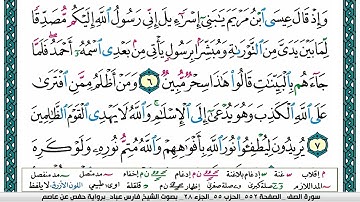 وَإِذْ قَالَ عِيسَى ابْنُ مَرْيَمَ يَٰبَنِىٓ إِسْرَٰٓءِيلَ إِنِّى رَسُولُ ٱللَّهِ إِلَيْكُم مُّصَدِّقًا
لِّمَا بَيْنَ يَدَىَّ مِنَ ٱلتَّوْرَىٰةِ وَمُبَشِّرًۢا بِرَسُولٍ يَأْتِى مِنۢ بَعْدِى ٱسْمُهُۥٓ أَحْمَدُ ۖ فَلَمَّا
جَآءَهُم بِٱلْبَيِّنَٰتِ قَالُوا۟ هَٰذَا سِحْرٌ مُّبِينٌ ٦ وَمَنْ أَظْلَمُ مِمَّنِ ٱفْتَرَىٰ
عَلَى ٱللَّهِ ٱلْكَذِبَ وَهُوَ يُدْعَىٰٓ إِلَى ٱلْإِسْلَٰمِ ۚ وَٱللَّهُ لَا يَهْدِى ٱلْقَوْمَ ٱلظَّٰلِمِينَ ٧
يُرِيدُونَ لِيُطْفِـُٔوا۟ نُورَ ٱللَّهِ بِأَفْوَٰهِهِمْ وَٱللَّهُ مُتِمُّ نُورِهِۦ وَلَوْ كَرِهَ
سورة الصف الصفحة ٥٥٢ الحزب ٥٥ الجزء ٢٨ بصوت الشيخ فارس عباد برواية حفص عن عاصم